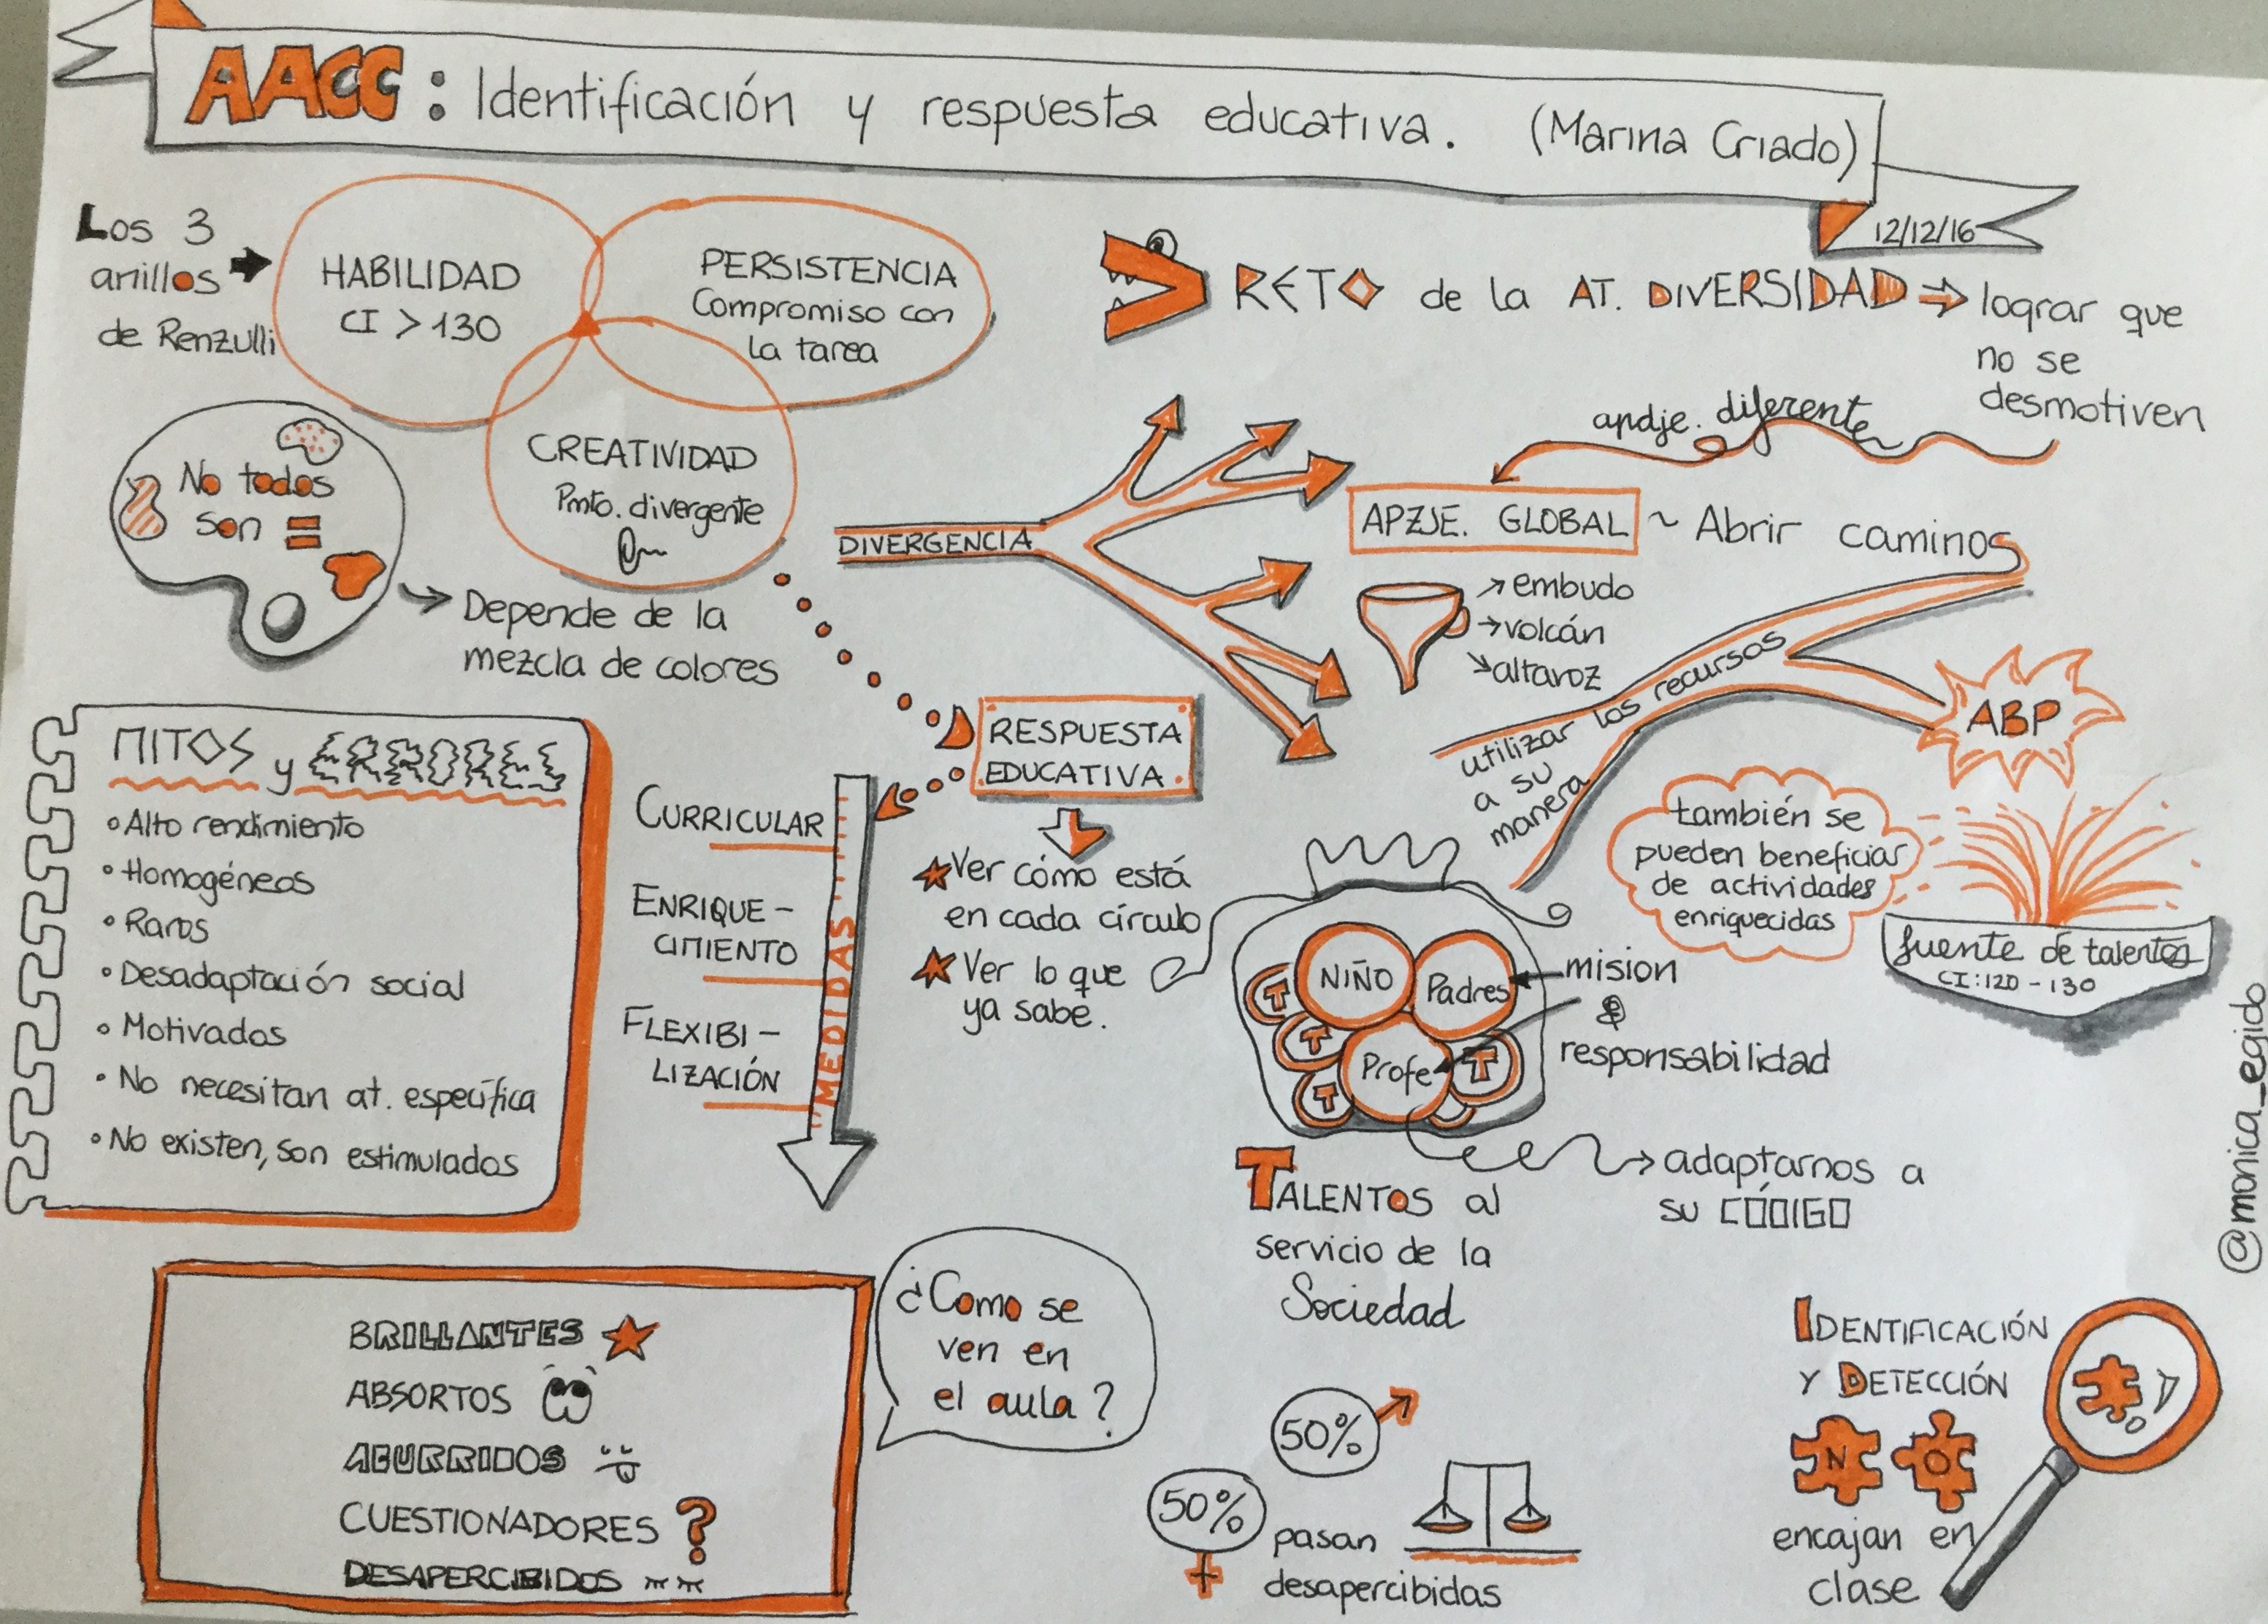 AACC: Identificación y respuesta educativa. (Marina Criado)
12/12/16
Los 3
anillos
de Renzulli
HABILIDAD
CI > 130
PERSISTENCIA
Compromiso con
la tarea
CREATIVIDAD
Pmto. divergente
No todos
son =
Depende de la
mezcla de colores
RETO de la AT. DIVERSIDAD ⇒ lograr que
no se
desmotiven
apdje. diferente
DIVERGENCIA
APZJE. GLOBAL ~ Abrir caminos
→ embudo
→ volcán
→ altavoz
utilizar los recursos
a su
manera
ABP
también se
pueden beneficiar
de actividades
enriquecidas
fuente de talentos
CI: 120 - 130
MITOS y ERRORES
• Alto rendimiento
• Homogéneos
• Raros
• Desadaptación social
• Motivados
• No necesitan at. específica
• No existen, son estimulados
RESPUESTA
EDUCATIVA
CURRICULAR
ENRIQUE-
CIMIENTO
FLEXIBI-
LIZACIÓN
MEDIDAS
Ver cómo está
en cada círculo
Ver lo que
ya sabe.
NIÑO
Padres
Profe
T
T
T
T
mision
&
responsabilidad
adaptarnos a
su CÓDIGO
TALENTOS al
servicio de la
Sociedad
BRILLANTES
ABSORTOS
ABURRIDOS
CUESTIONADORES ?
DESAPERCIBIDOS
¿Como se
ven en
el aula?
50%
50%
pasan
desapercibidas
IDENTIFICACIÓN
Y DETECCIÓN
N O
encajan en
clase
@monica_egido